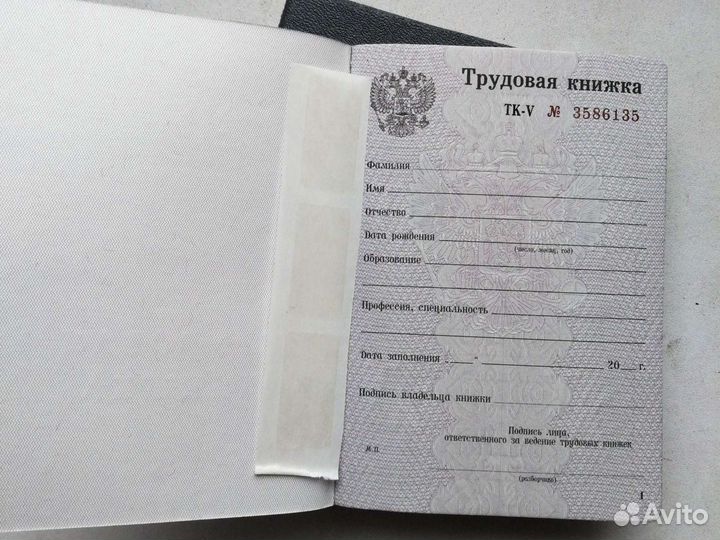 Трудовая книжка
ТК-V № 3586135
Фамилия
Имя
Отчество
Дата рождения
(число, месяц, год)
Образование
Профессия, специальность
Дата заполнения „ “ 20 г.
Подпись владельца книжки
Подпись лица,
ответственного за ведение трудовых книжек
М.П.
(разборчиво)
1
Avito